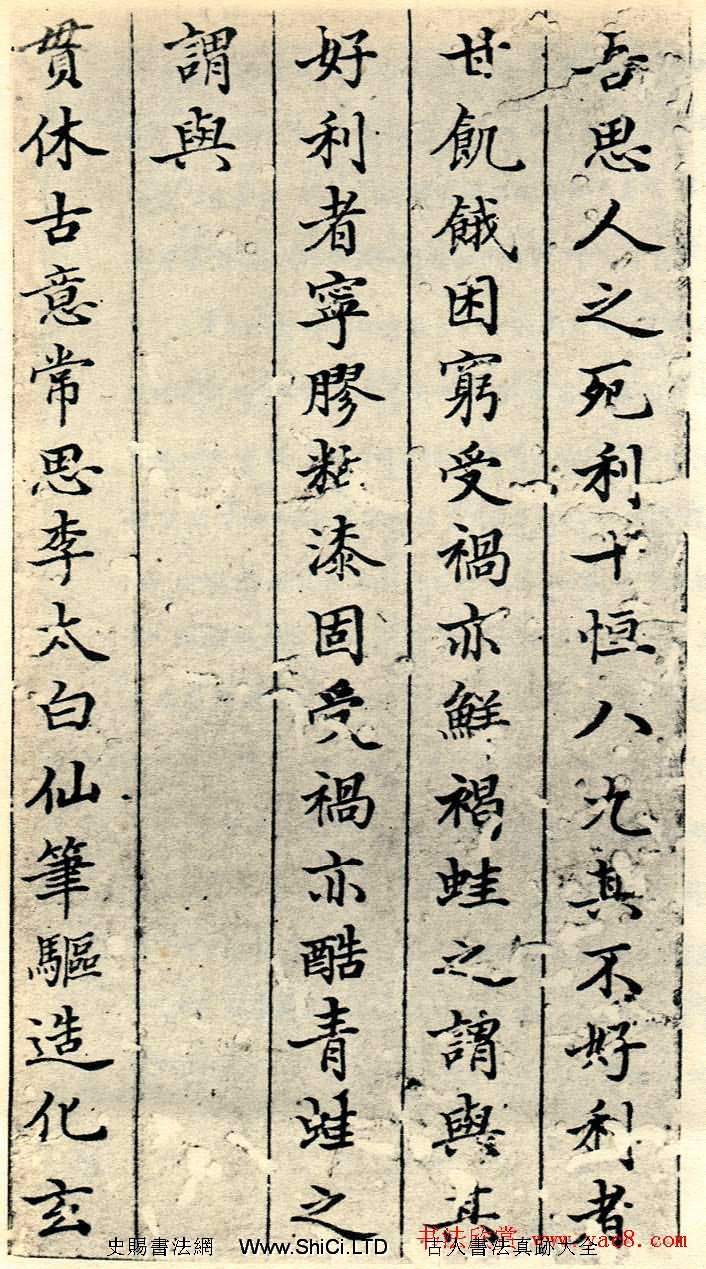 吾思人之死利十恒八九真不好利者
甘飢餓困窮受禍亦鮮褐蛙之謂與其
好利者寧膠粘漆固受禍亦酷青蛙之
謂與
貫休古意常思李太白仙筆驅造化玄
史賜書法網 Www.ShiCi.LTD 古人書法真跡大全
书法欣赏 www.yac8.com